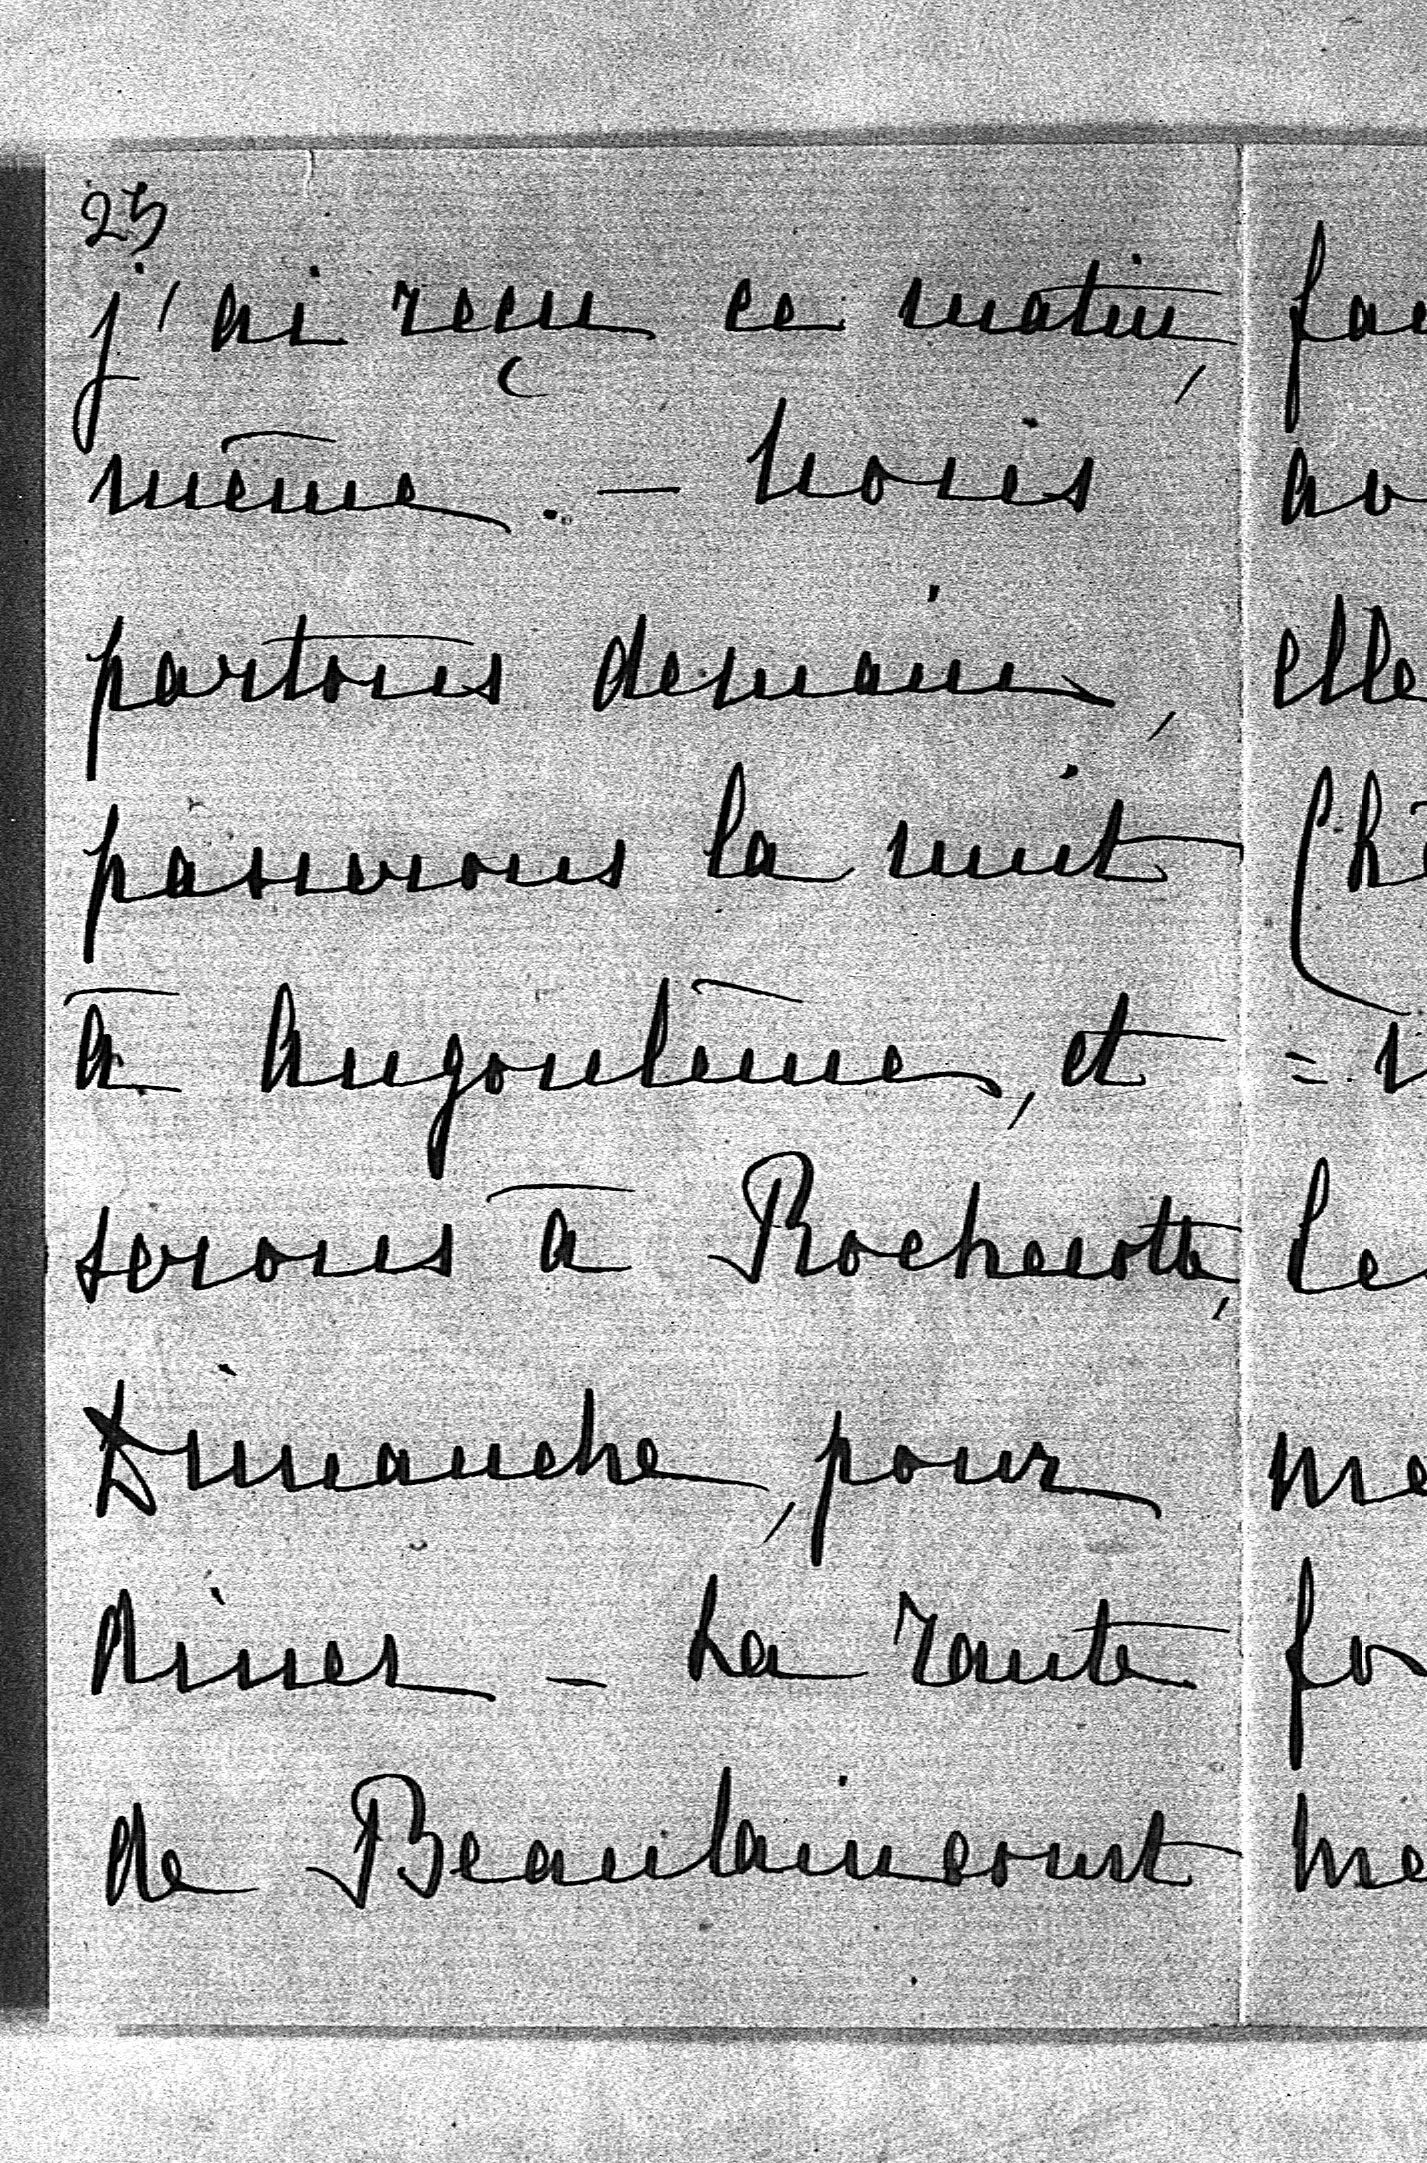 25
j'ai reçu ce matin,
même. – Nous
partons demain,
passerons la nuit
à Angoulême, et
serons à Rochecotte,
Dimanche, pour
diner – La route
de Beaulaincourt